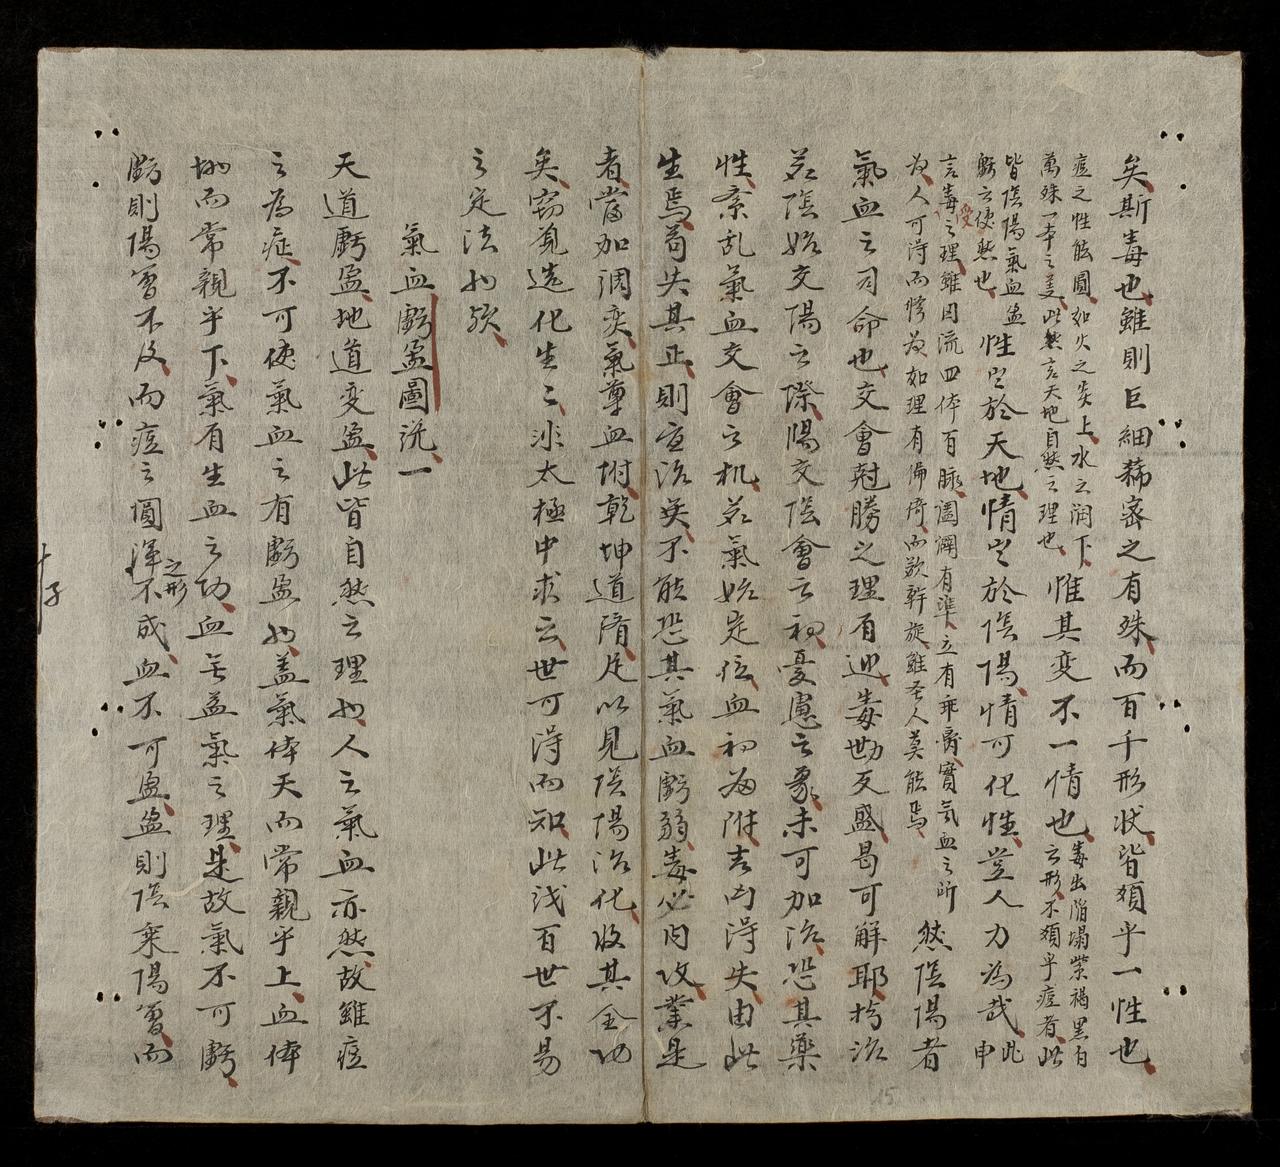 矣斯毒也雖則巨細稀密之有殊而百千形狀皆類乎一性也
痘之性能圓如火之炎上水之润下
萬殊一本之美此然言天地自然之理也
惟其变不一情也
毒出陷塌紫褐黑白
之形不類乎痘者此
皆陰陽氣血盈
虧之使然也
性定於天地情定於陰陽情可化性豈人力為哉
此
申
言毒受之理雖因流四体百脉圊闢有準立有乖舛實氣血之所
为人可得而傍为如理有偏奇而欲斡旋雖圣人莫能焉
然陰陽者
氣血之司命也交會尅勝之理有迎毒勘反盛曷可解耶於治
若陰始交陽之際陽交陰會之初憂慮之象未可加治恐其藥
性紊乱氣血交會之机若氣始定位血初為附吉凶得失由此
生焉苟失其正則宜治矣不能恐其氣血虧弱毒必内攻業是
者當加調爕氣尊血附乾坤道隋足以見陰陽治化收其全功
矣窃覓造化生之非太極中求之世可得而知此浅百世不易
之定法也欤
氣血虧盈圖説一
天道虧盈地道变盈此皆自然之理也人之氣血亦然故雖痘
之為症不可使氣血之有虧盈也盖氣体天而常親乎上血体
地而常親乎下氣有生血之功血无益氣之理是故氣不可虧
虧則陽會不及而痘之圓渾之形不成血不可盈盈則陰乘陽會而
15